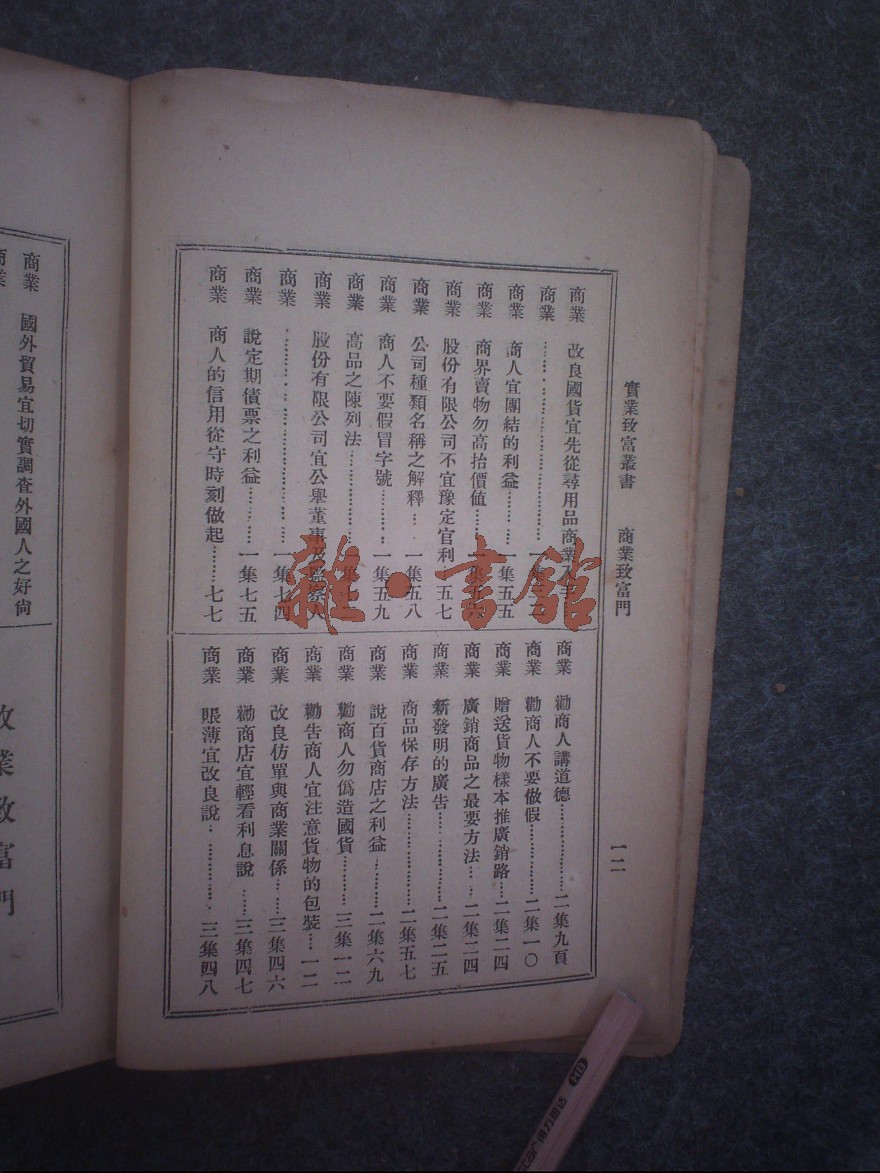 實業致富叢書 商業致富門 一二
商業 改良國貨宜先從尋用品商業入手
商業 ……………… 一集
商業 商人宜團結的利益……… 一集五五
商業 商界賣物勿高抬價值…… 一集五
商業 股份有限公司不宜豫定官利 五七
商業 公司種類名稱之解釋…… 一集五八
商業 商人不要假冒字號……… 一集五九
商業 商品之陳列法……… 一集七
商業 股份有限公司宜公舉董事及監察人
商業 ……………… 一集七四
商業 說定期債票之利益……… 一集七五
商業 商人的信用從守時刻做起……… 七七
商業 勸商人講道德……………… 二集九頁
商業 勸商人不要做假………… 二集一〇
商業 贈送貨物樣本推廣銷路… 二集二四
商業 廣銷商品之最要方法…… 二集二四
商業 新發明的廣告…………… 二集二五
商業 商品保存方法…………… 二集五七
商業 說百貨商店之利益……… 二集六九
商業 勸商人勿偽造國貨……… 三集一二
商業 勸告商人宜注意貨物的包裝… 一二
商業 改良仿單與商業關係…… 三集四六
商業 勸商店宜輕看利息說…… 三集四七
商業 賬薄宜改良說…………… 三集四八
商業 國外貿易宜切實調查外國人之好尙
商業
致富門
雜·書館
HB